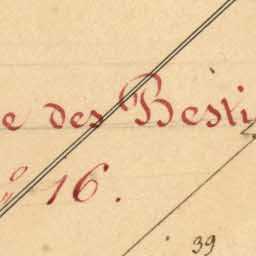 e des Besti
№ 16.
39